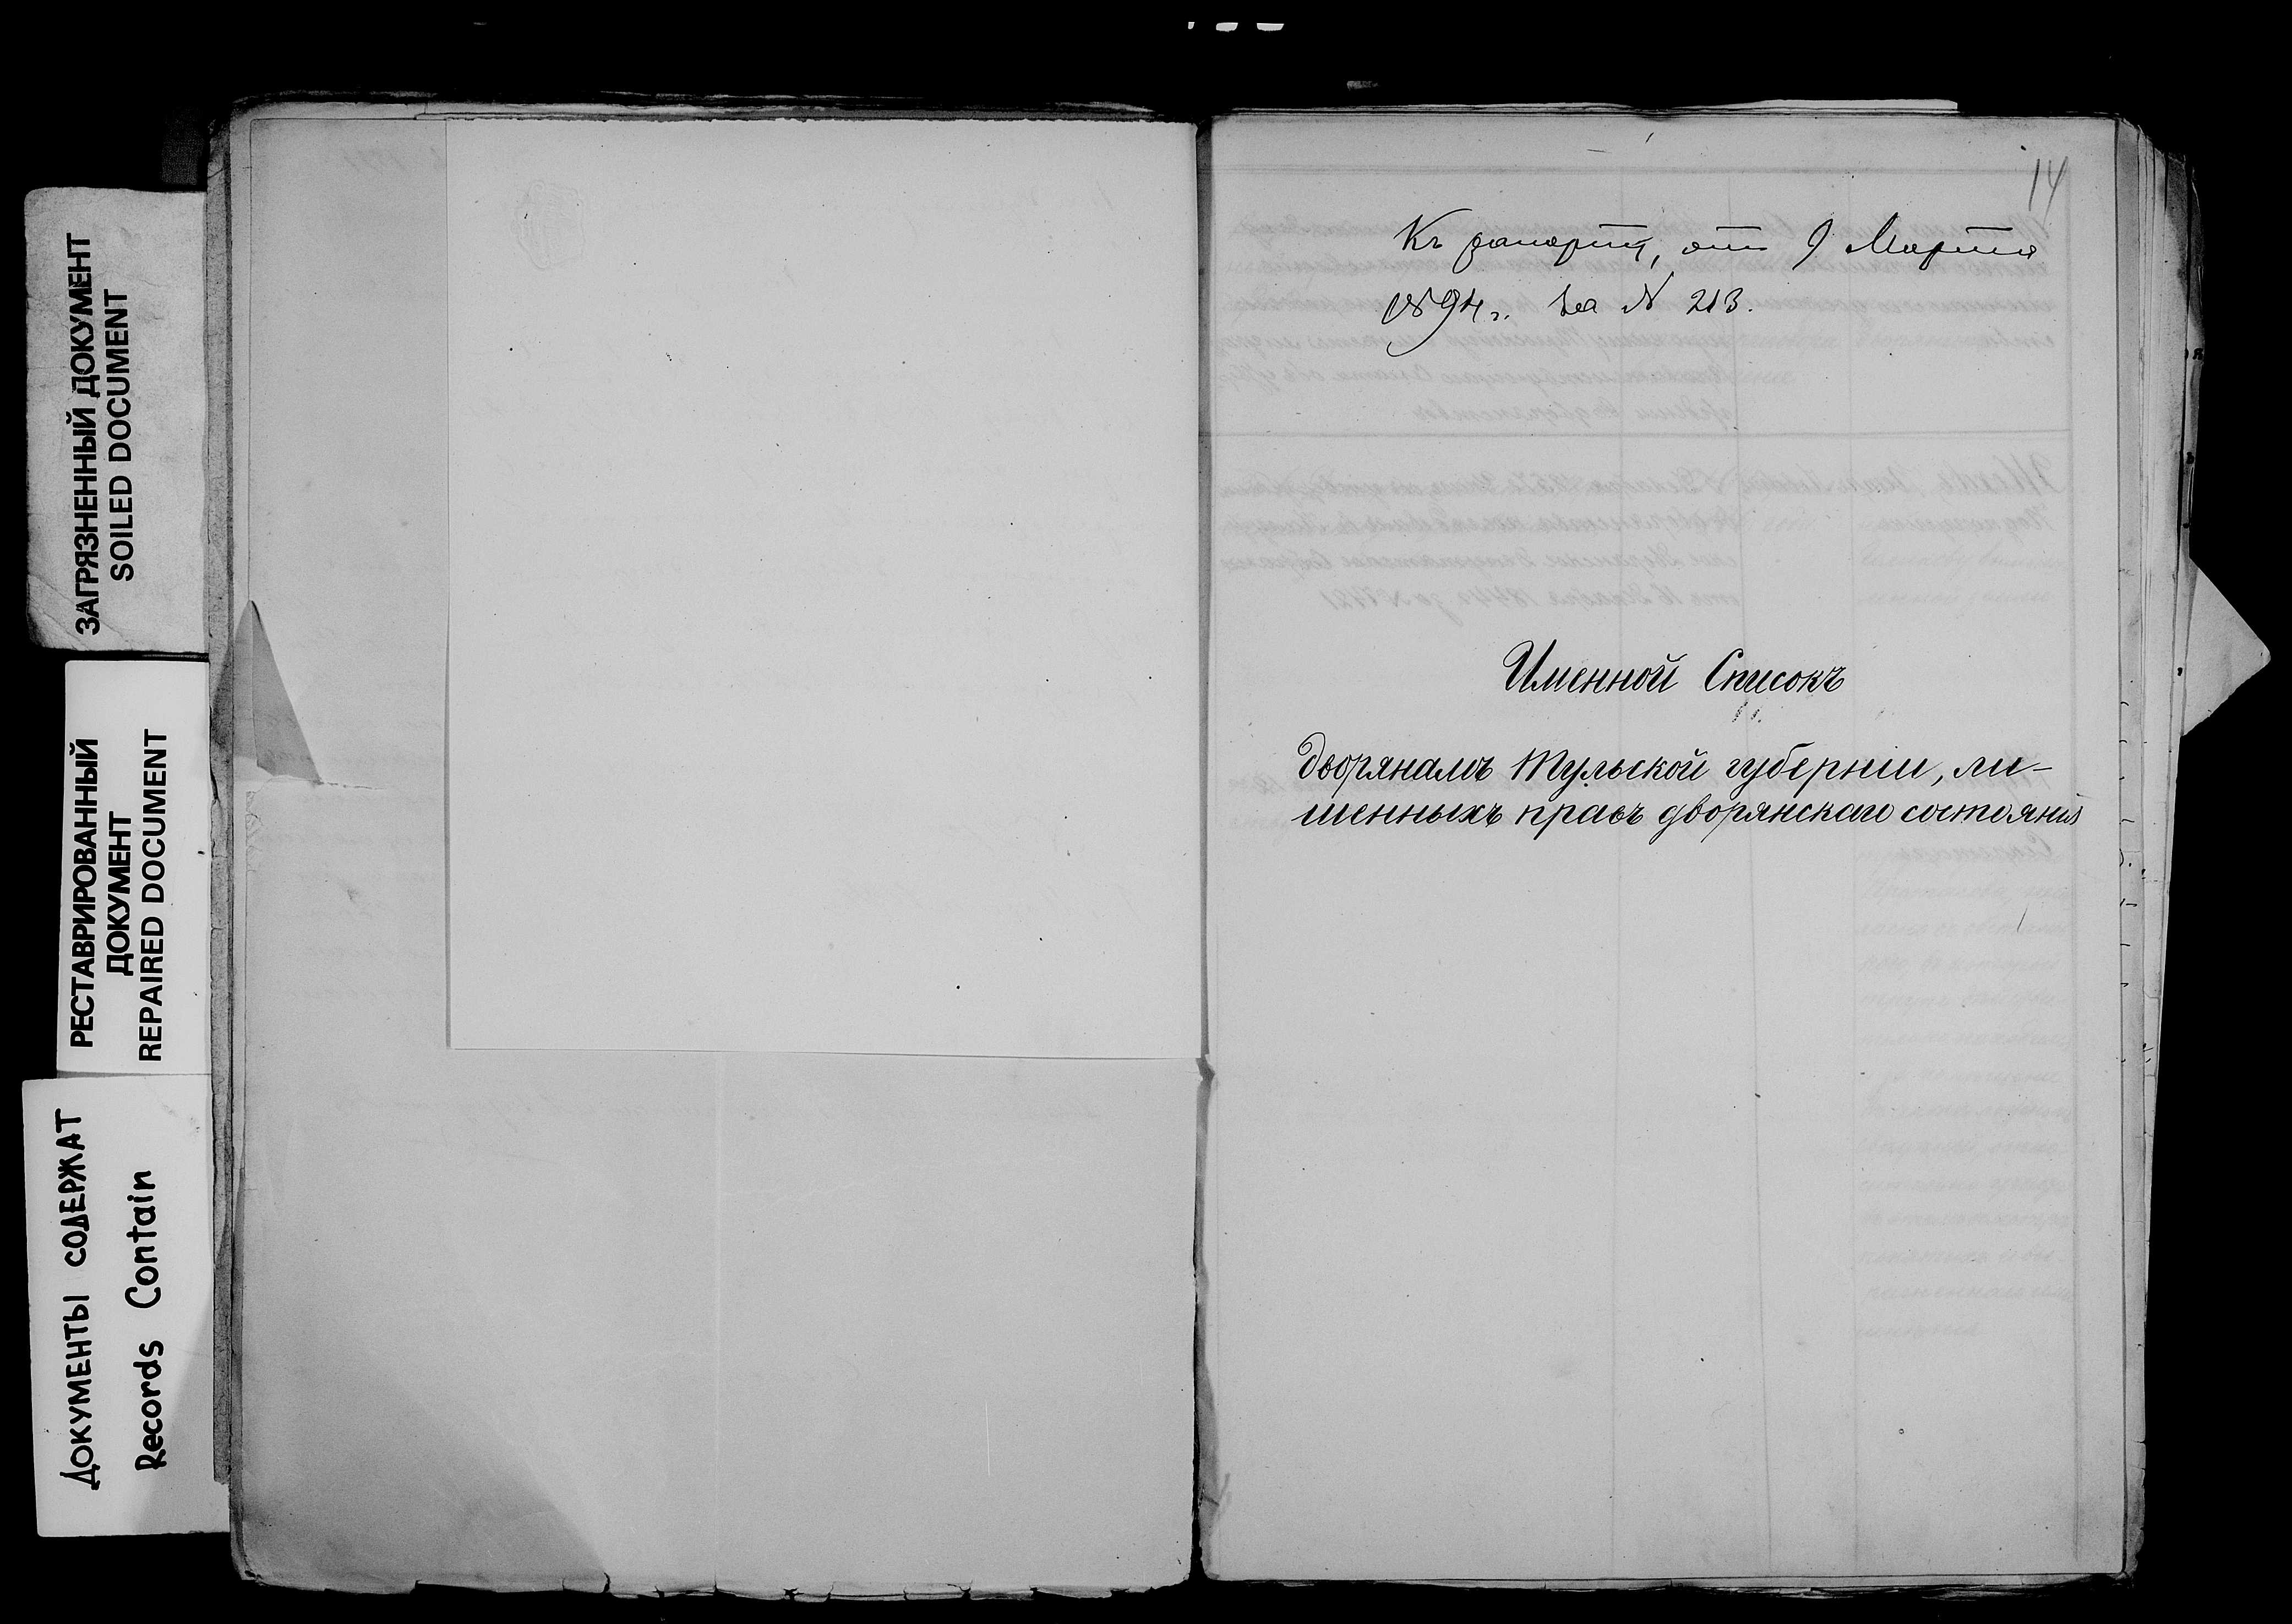 ЗАГРЯЗНЕННЫЙ ДОКУМЕНТ
SOILED DOCUMENT
РЕСТАВРИРОВАННЫЙ
ДОКУМЕНТ
REPAIRED DOCUMENT
ДОКУМЕНТЫ СОДЕРЖАТ
Records Contain
14
Къ рапорту, отъ 9 Марта
1894 г. за N 213.
Именной Списокъ
дворянамъ Тульской губерніи, ли-
шенныхъ правъ дворянскаго состоянія